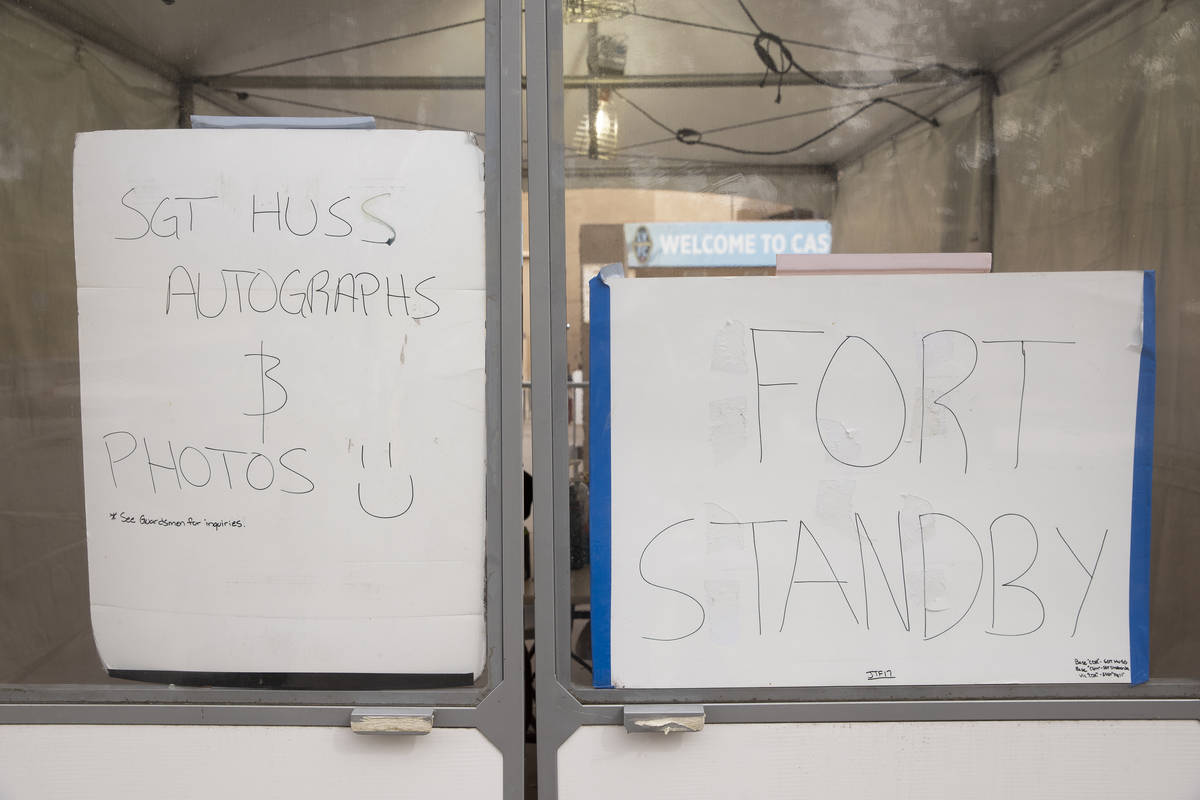 SGT HUSS
AUTOGRAPHS
&
PHOTOS
* See Guardsmen for inquiries.
WELCOME TO CAS
FORT
STANDBY
JTF17
Base "CDR" - SGT HUSS